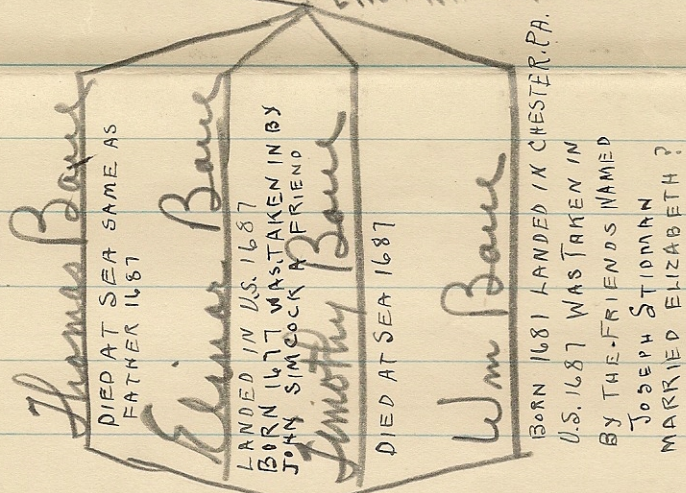 Thomas Bane
DIED AT SEA SAME AS
FATHER 1687
Elinor Bane
LANDED IN U.S. 1687
BORN 1677 WAS TAKEN IN BY
JOHN SIMCOCK A FRIEND
Timothy Bane
DIED AT SEA 1687
Wm Bane
BORN 1681 LANDED IN CHESTER. PA.
U.S. 1687 WAS TAKEN IN
BY THE FRIENDS NAMED
JOSEPH STIDMAN
MARRIED ELIZABETH ?